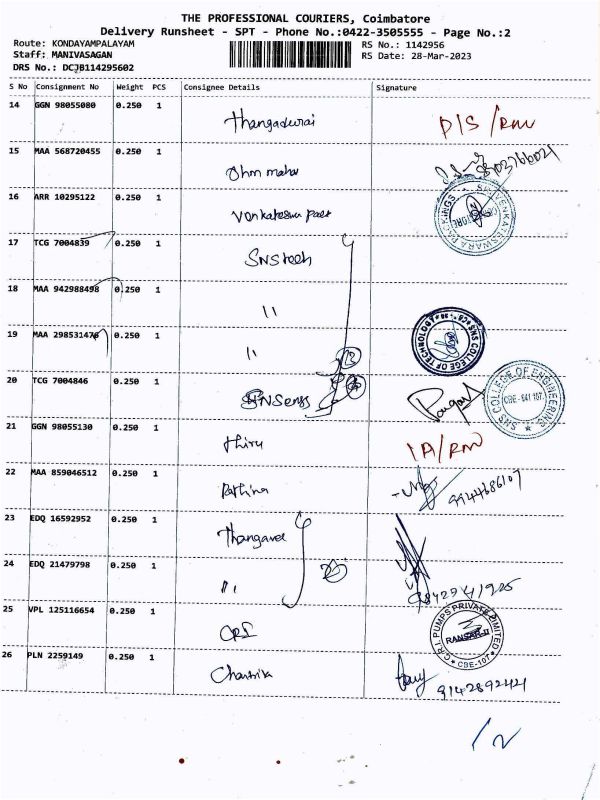 THE PROFESSIONAL COURIERS, Coimbatore
Delivery Runsheet - SPT - Phone No.:0422-3505555 - Page No.:2
Route: KONDAYAMPALAYAM
RS No.: 1142956
Staff: MANIVASAGAN
RS Date: 28-Mar-2023
DRS No.: DCJB114295602
S No Consignment No Weight PCS Consignee Details Signature
14 GGN 98055080 0.250 1 Thangadurai D/S /RM
15 MAA 568720455 0.250 1
16 ARR 10295122 0.250 1
SRI VENKATESWARA PACKINGS
17 TCG 7004839 0.250 1 SNS tech
18 MAA 942988498 0.250 1 "
19 MAA 298531476 0.250 1 "
SNS COLLEGE OF TECHNOLOGY
20 TCG 7004846 0.250 1 SNS engg
SNS COLLEGE OF ENGINEERING
CBE - 641 107.
21 GGN 98055130 0.250 1 thiru IA/RM
22 MAA 859046512 0.250 1 Rathina 9944686107
23 EDQ 16592952 0.250 1 Thangavel
24 EDQ 21479798 0.250 1 "
25 VPL 125116654 0.250 1 CRI
C.R.I. PUMPS PRIVATE LIMITED
CBE-107
26 PLN 2259149 0.250 1